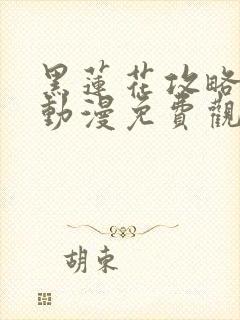 黑蓮花攻略
動漫免費觀
胡束